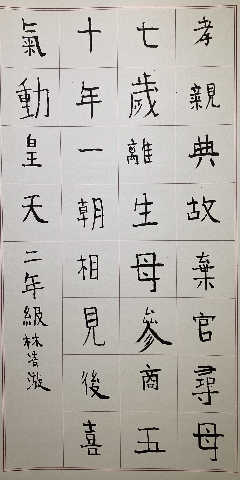 孝親典故棄官尋母
七歲離生母參商五
十年一朝相見後喜
氣動皇天
二年級林浩漩